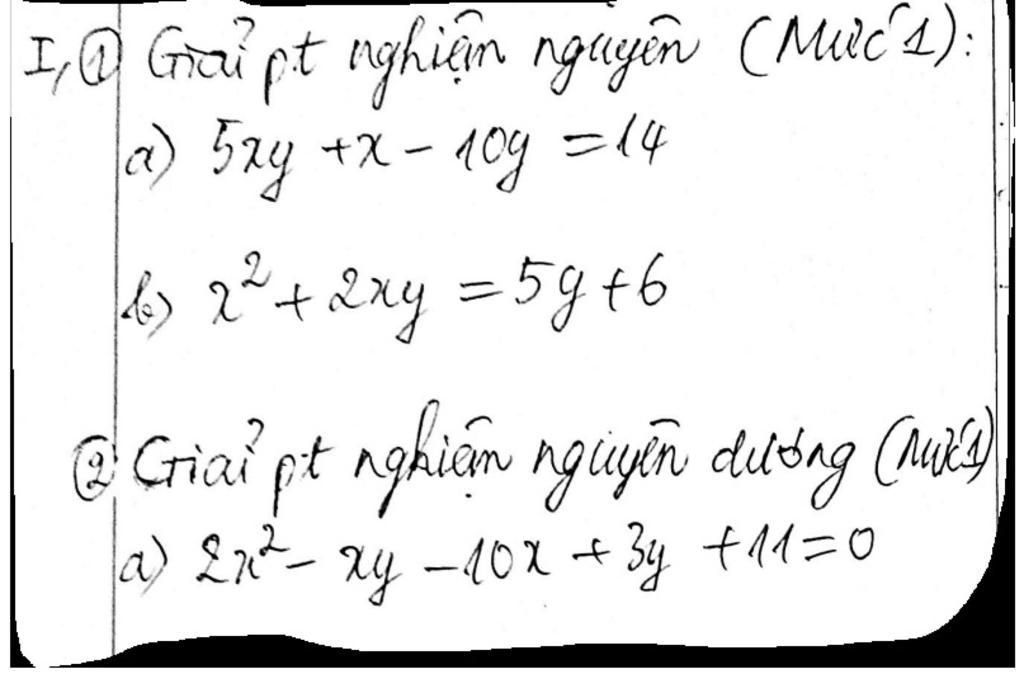 I, ① Giải pt nghiệm nguyên (Mức 1):
a) 5xy + x - 10y = 14
b) x² + 2xy = 5y + 6
② Giải pt nghiệm nguyên dương (Mức 1)
a) 2x² - xy - 10x + 3y + 11 = 0